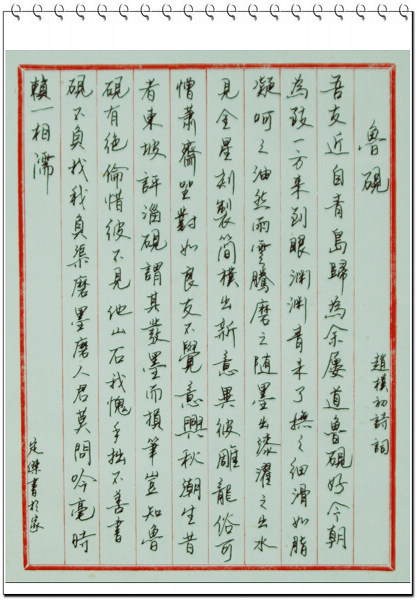 魯硯
趙樸初詩詞
吾友近自青島歸為余屢道魯硯好今朝
為致一方来到眼渊渊青未了撫之细滑如脂
凝呵之油然雨雲騰磨之随墨出漆濯之出水
見金星刻製简樸出新意異彼雕龍俗可
憎蕭齋坐對如良友不覺意興秋潮生昔
者東坡評淄硯謂其發墨而損筆豈知魯
硯有绝倫惜彼不見他山石我愧手拙不善書
硯不負我我負渠磨墨磨人君莫問吟毫時
賴一相濡
書於家